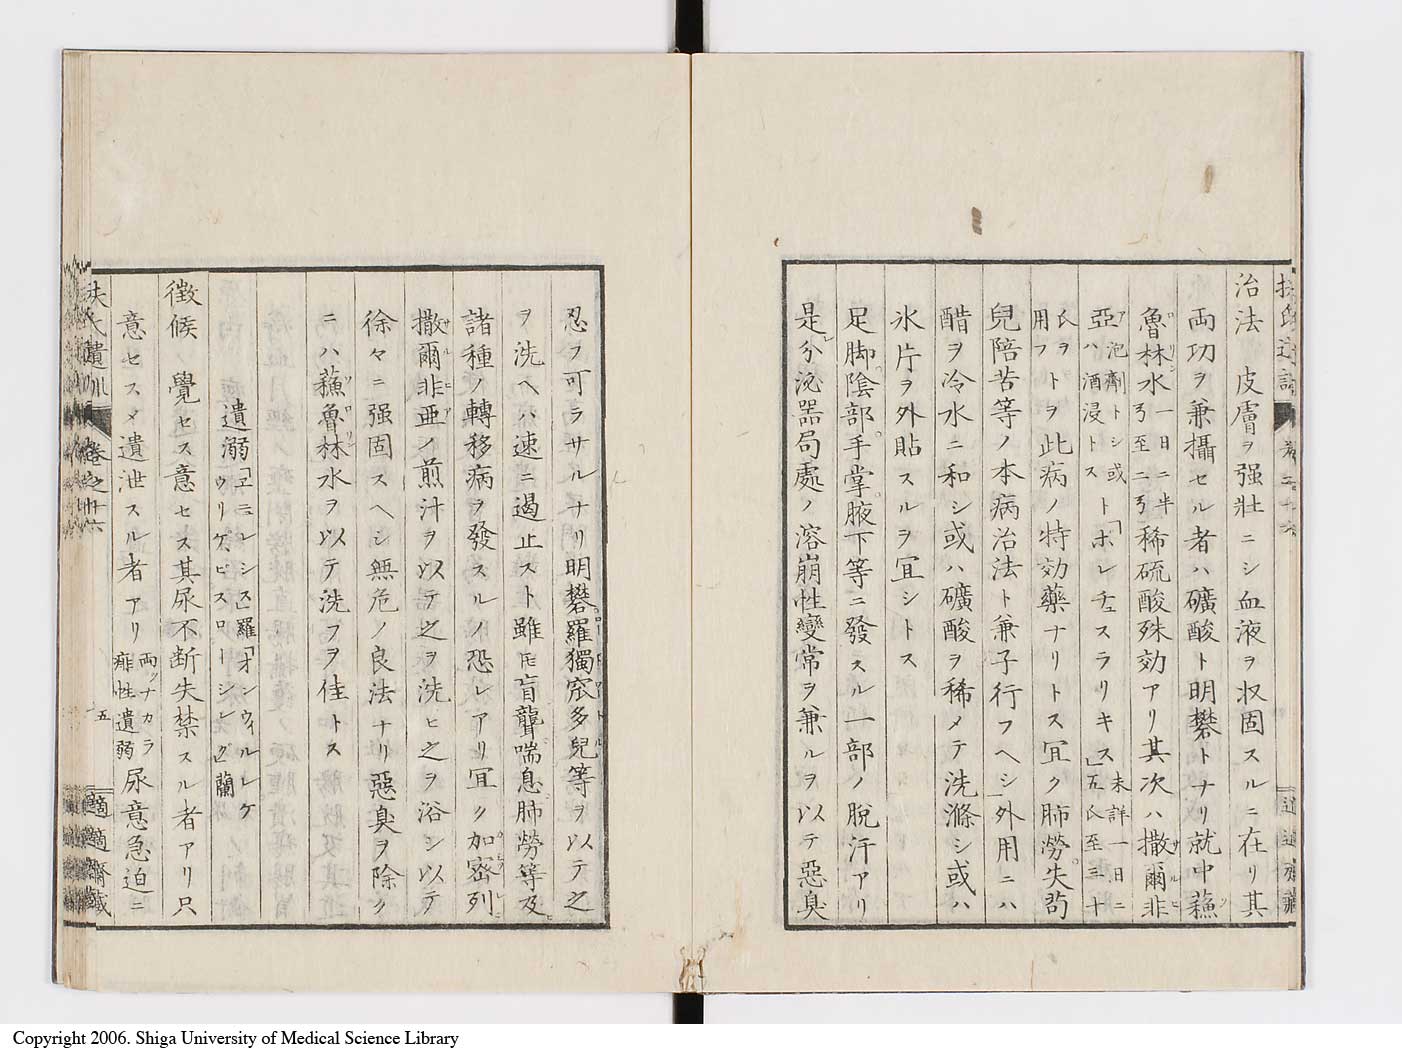 治法 皮膚ヲ强壯ニシ血液ヲ収固スルニ在リ其
両功ヲ兼攝セル者ハ礦酸ト明礬トナリ就中蘓
魯林水一日ニ半弓至二弓稀硫酸殊効アリ其次ハ撒爾非
亞泡劑トシ或ハ酒浸トストボレチュスラリキス未詳一日ニ五氏至三十
氏ヲ用フトヲ此病ノ特効藥ナリトス宜ク肺勞失苟
兒陪苦等ノ本病治法ト兼子行フヘシ外用ニハ
醋ヲ冷水ニ和シ或ハ礦酸ヲ稀メテ洗滌シ或ハ
氷片ヲ外貼スルヲ宜シトス
足脚陰部手掌腋下等ニ發スル一部ノ脫汗アリ
是分泌器局處ノ溶崩性變常ヲ兼ルヲ以テ惡臭
忍ヲ可ラサルナリ明礬羅獨窊多兒等ヲ以テ之
ヲ洗ヘハ速ニ遏止スト雖𪜈盲聾喘息肺勞等及
諸種ノ轉移病ヲ發スルノ恐レアリ宜ク加密列
撒爾非亞ノ煎汁ヲ以テ之ヲ洗ヒ之ヲ浴シ以テ
徐々ニ强固スヘシ無危ノ良法ナリ惡臭ヲ除ク
ニハ蘓魯林水ヲ以テ洗フヲ佳トス
遺溺「ヱニュレシス」羅「オンウィルレケウリゲピスロートシング」蘭
徴候 覺セス意セス其尿不断失禁スル者アリ只
意セスメ遺泄スル者アリ両ッナカラ痲性遺溺尿意急迫ニ
扶氏遺訓 巻之十六 五 適適齋藏